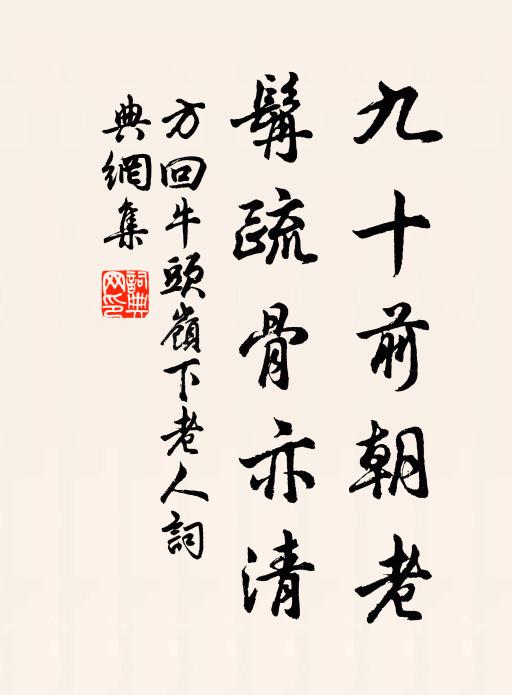 九十前朝老
髯疏骨亦清
方回牛頭嶺下老人詞
典網集
詞典
網印